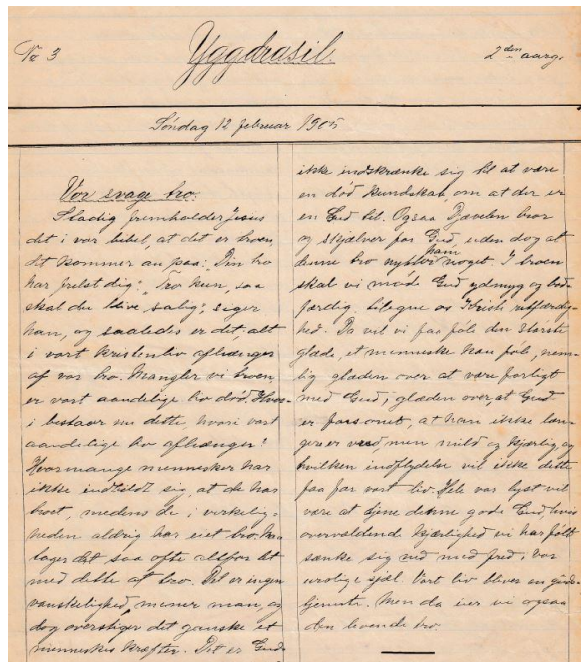 Nr 3
Yggdrasil.
2den aarg.
Søndag 12 februar 1905
Vor svage tro.
Stadig fremholder Jesus
det i vor bibel, at det er troen,
det kommer an paa: "Din tro
har frelst dig; "Tro kun, saa
skal du blive salig; siger
han, og saaledes er det, alt
i vort kristenliv afhænger
af vor tro. Mangler vi troen
er vort aandelige liv død. Hvor-
i bestaar nu dette, hvori vort
aandelige liv afhænger?
Hvormange mennesker har
ikke indbildt sig, at de har
troet, medens de i virkelig-
heden aldrig har eiet tro. Man
tager det saa ofte altfor let
med dette at tro. Det er ingen
vanskelighed, mener man, og
dog overstiger det ganske et
menneskes kræfter. Det er Guds
ikke indskrænke sig til at være
en død kundskab, om at der er
en Gud til. Ogsaa Djævelen tror
og skjælver for Gud, uden dog at
denne tro nytter ham noget. I troen
skal vi møde Gud ydmyg og bod-
færdig, tilegne os Kristi retfærdig-
hed. Da vil vi faa føle den største
glæde, et menneske kan føle, nem-
lig glæden over at være forligt
med Gud; glæden over, at Gud
er forsonet, at han ikke læn-
ger er vred, men mild og kjærlig, og
hvilken indflydelse vil ikke dette
faa for vort liv. Hele vor lyst vil
være at tjene denne gode Gud, hvis
overvældende kjærlighed vi har følt
sænke sig ned med fred i vor
urolige sjæl. Vort liv bliver en guds-
tjeneste. Men da eier vi ogsaa
den levende tro.